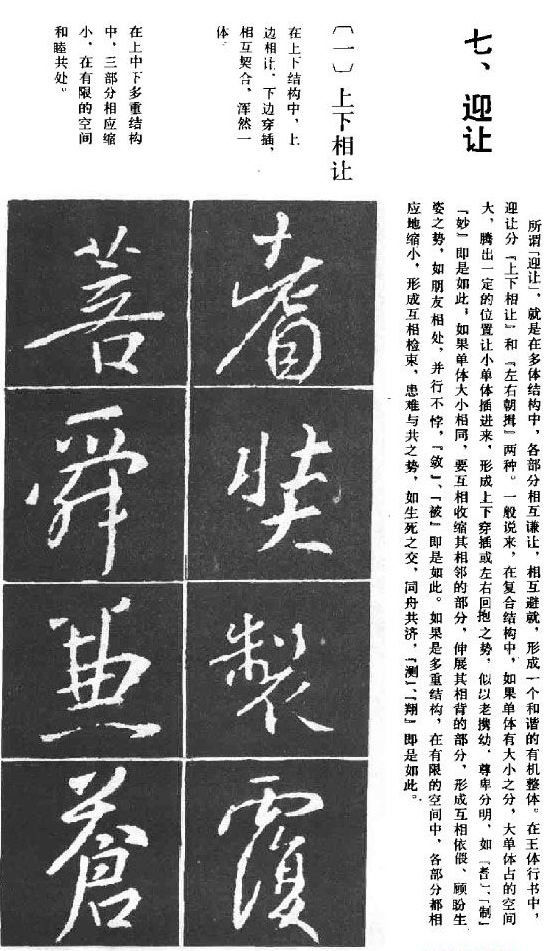 七、迎让
所谓『迎让』，就是在多体结构中，各部分相互谦让，相互避就，形成一个和谐的有机整体。在王体行书中，
迎让分『上下相让』和『左右朝揖』两种。一般说来，在复合结构中，如果单体有大小之分，大单体占的空间
大，腾出一定的位置让小单体插进来，形成上下穿插或左右回抱之势，似以老携幼，尊卑分明，如『耆』、『制』
『妙』即是如此；如果单体大小相同，要互相收缩其相邻的部分，伸展其相背的部分，形成互相依偎、顾盼生
姿之势，如朋友相处，并行不悖，『敛』、『被』即是如此。如果是多重结构，在有限的空间中，各部分都相
应地缩小，形成互相检束，患难与共之势，如生死之交，同舟共济，『测』、『翔』即是如此。
〔一〕上下相让
在上下结构中，上
边相让，下边穿插，
相互契合，浑然一
体。
耆
奘
製
覆
在上中下多重结构
中，三部分相应缩
小，在有限的空间
和睦共处。
菩
舜
典
蒼